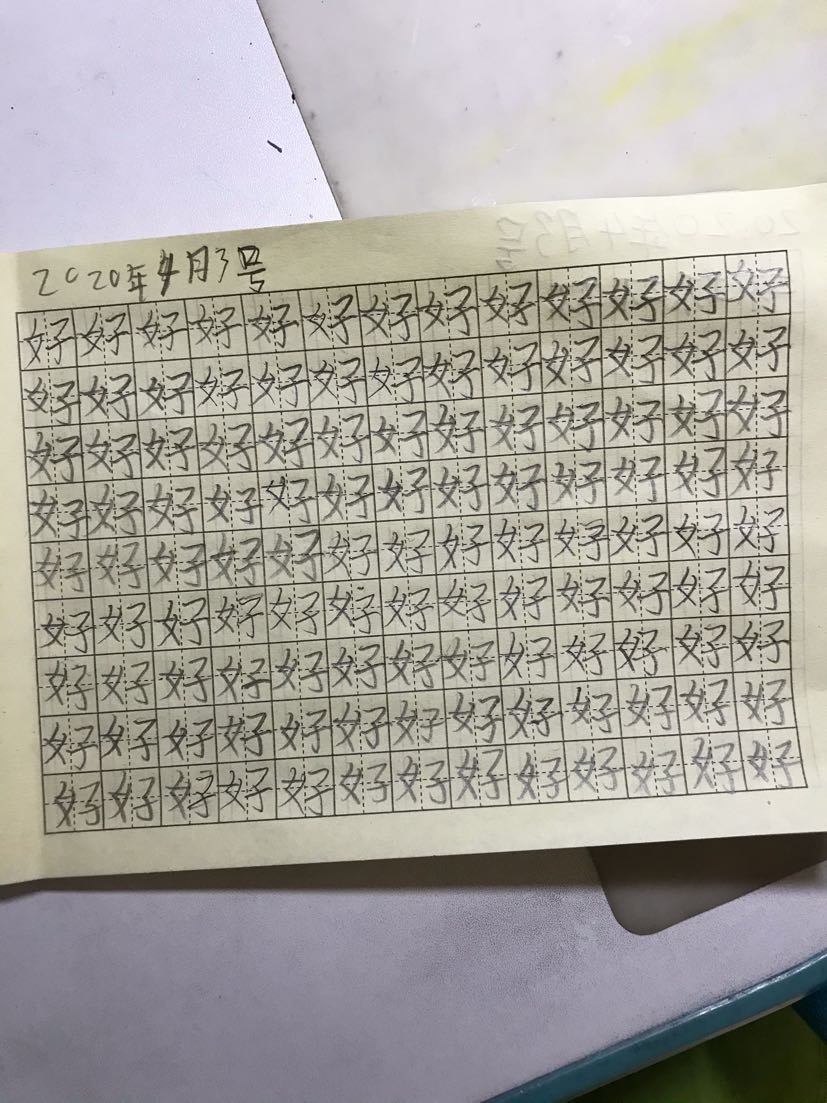 2020年4月3号
好好好好好好好好好好好好好
好好好好好好好好好好好好好
好好好好好好好好好好好好好
好好好好好好好好好好好好好
好好好好好好好好好好好好好
好好好好好好好好好好好好好
好好好好好好好好好好好好好
好好好好好好好好好好好好好
好好好好好好好好好好好好好